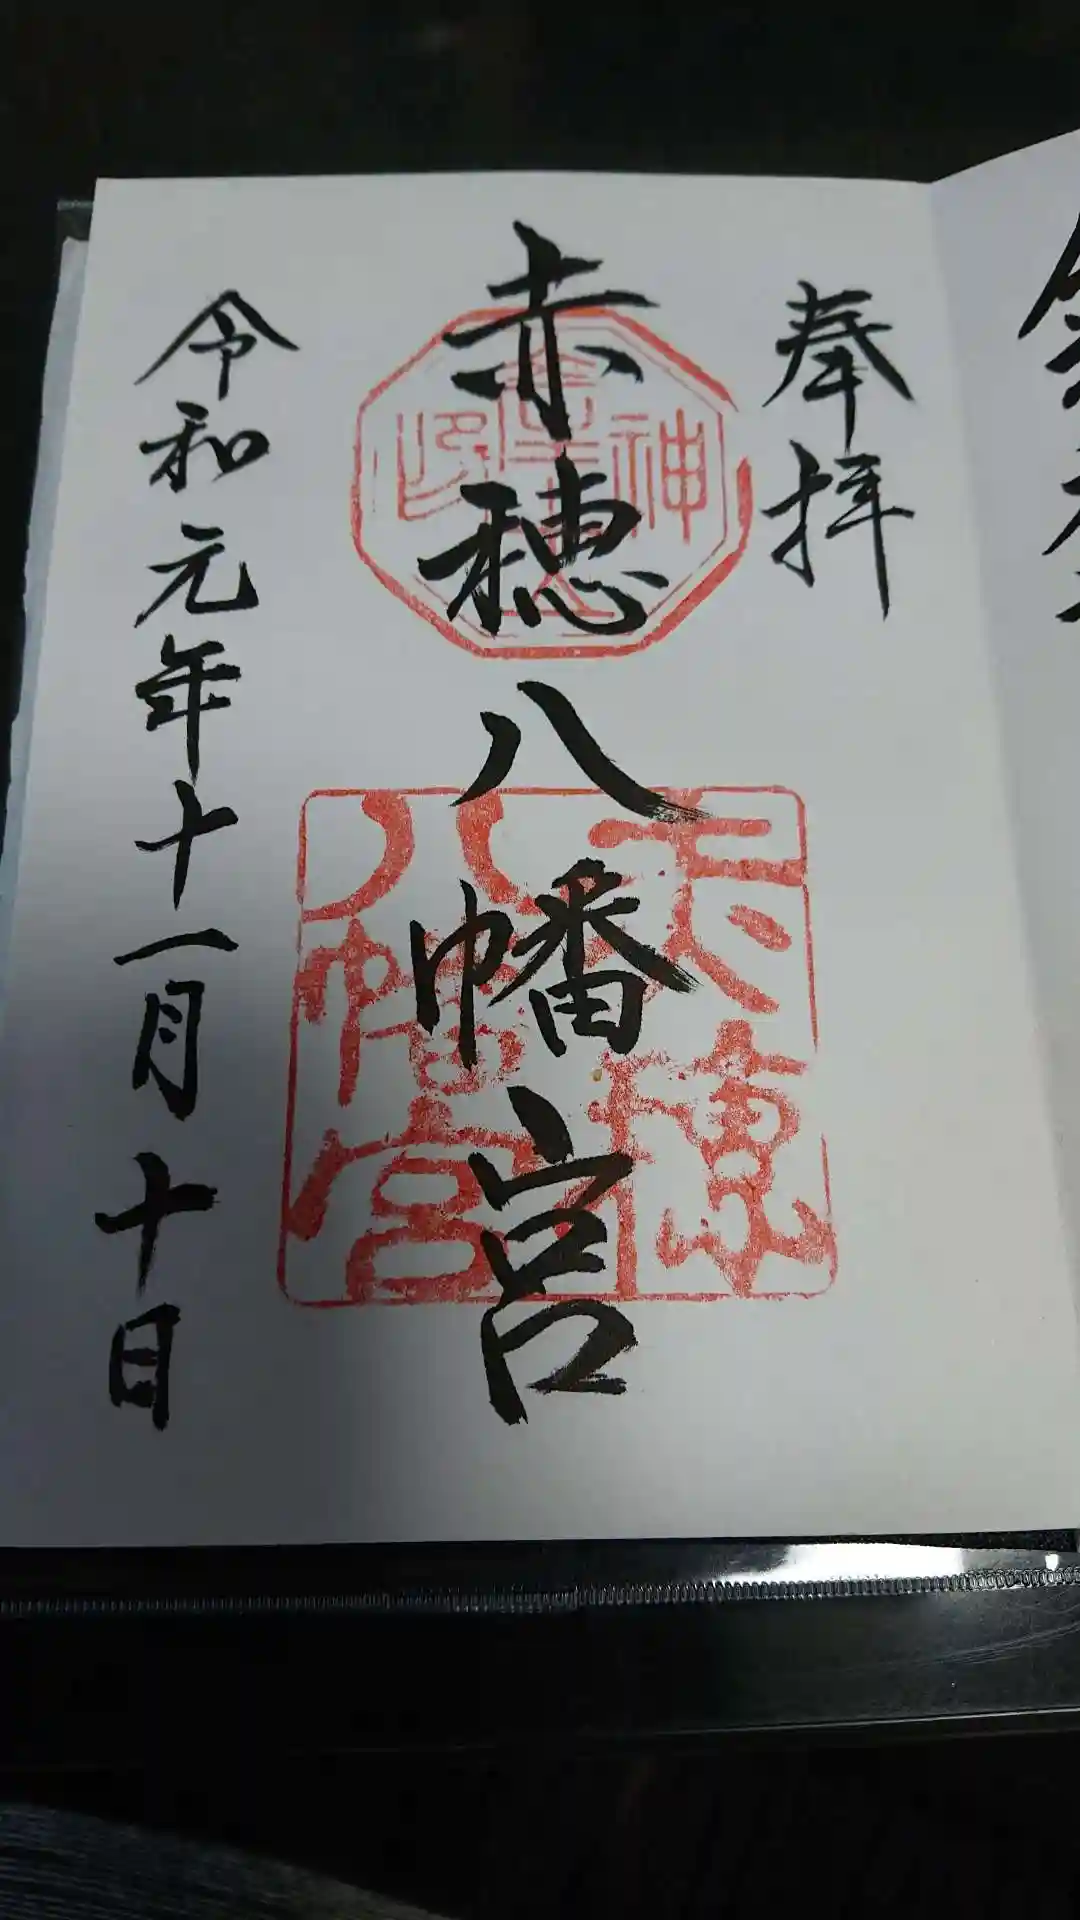 奉拝
赤穂八幡宮
令和元年十一月十日
赤穂
八幡宮